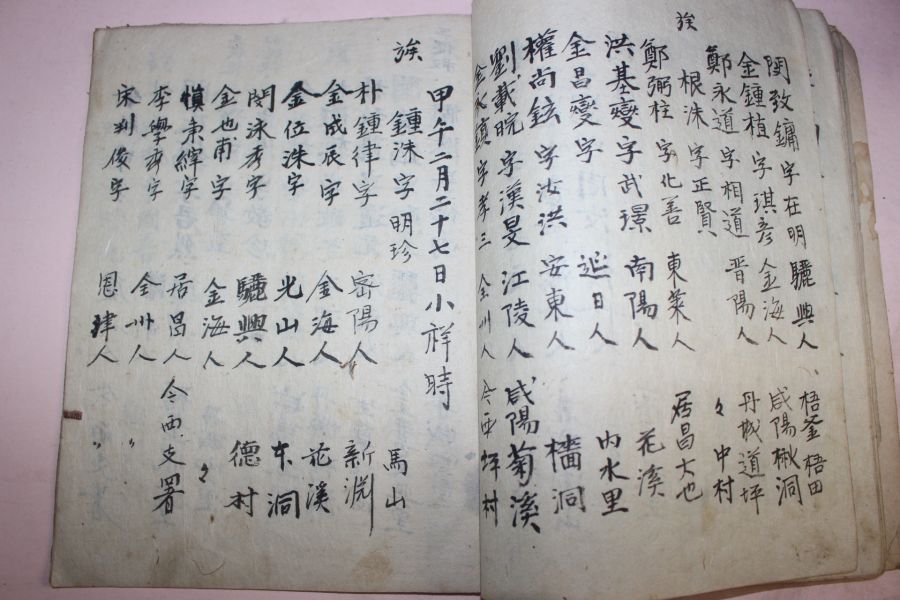 閔致鏞 字在明 驪興人 梧釜梧田
金鍾植 字琪彦 金海人 咸陽楸洞
鄭永道 字相道 晋陽人 丹城道坪
族 根洙 字正賢 々中村
鄭弼柱 字化善 東萊人 居昌大也
洪基燮 字武璟 南陽人 花溪
金昌燮 字 延日人 內水里
權尚鉉 字汝洪 安東人 檣洞
劉載晥 字漢旻 江陵人 咸陽菊溪
金永鎮 字孝三 全州人 今西坪村
甲午二月二十七日小祥時
族 鍾洙 字明珍 馬山
朴鍾律 字 密陽人 新渊
金成辰 字 金海人 花溪
金位洙 字 光山人 东洞
閔泳秀 字 驪興人 德村
金也甫 字 金海人 々
慎宗縡 字 居昌人 今西支署
李學秀 字 全州人 〃
宋判俊 字 恩津人 〃